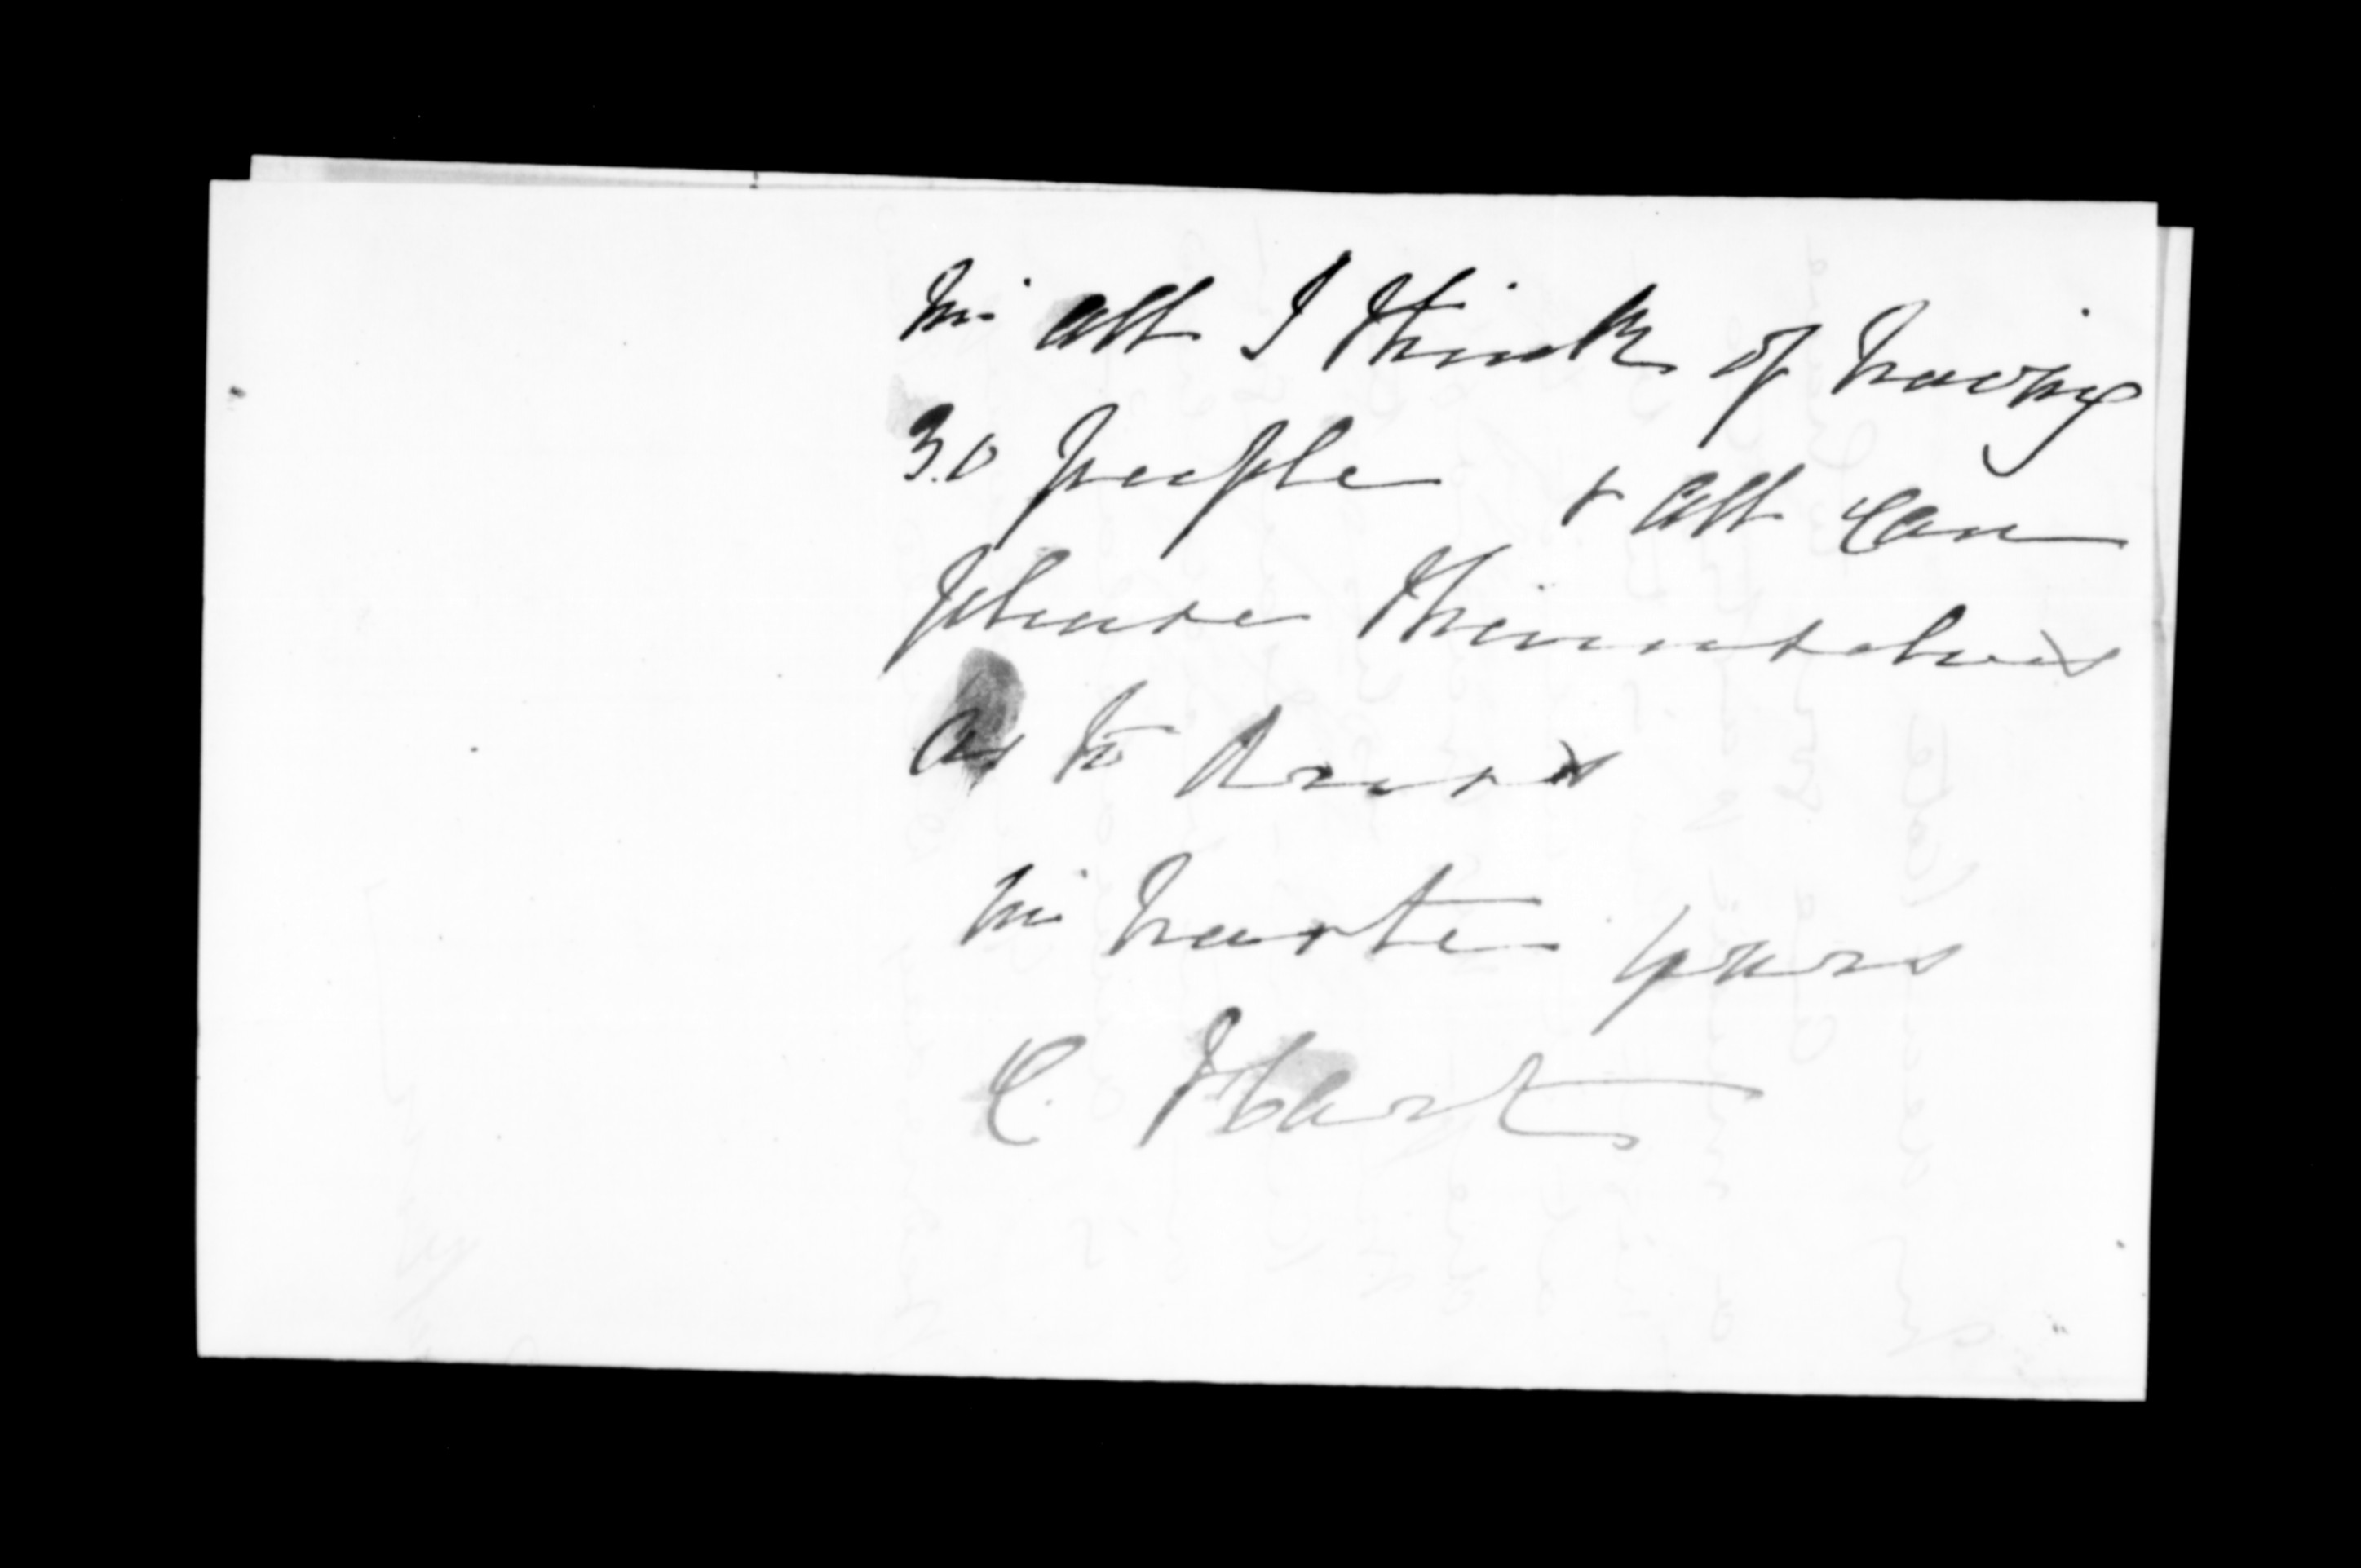 In all I think of having
30 people & all can
please themselves
as to dress
In haste yours
C. Hart